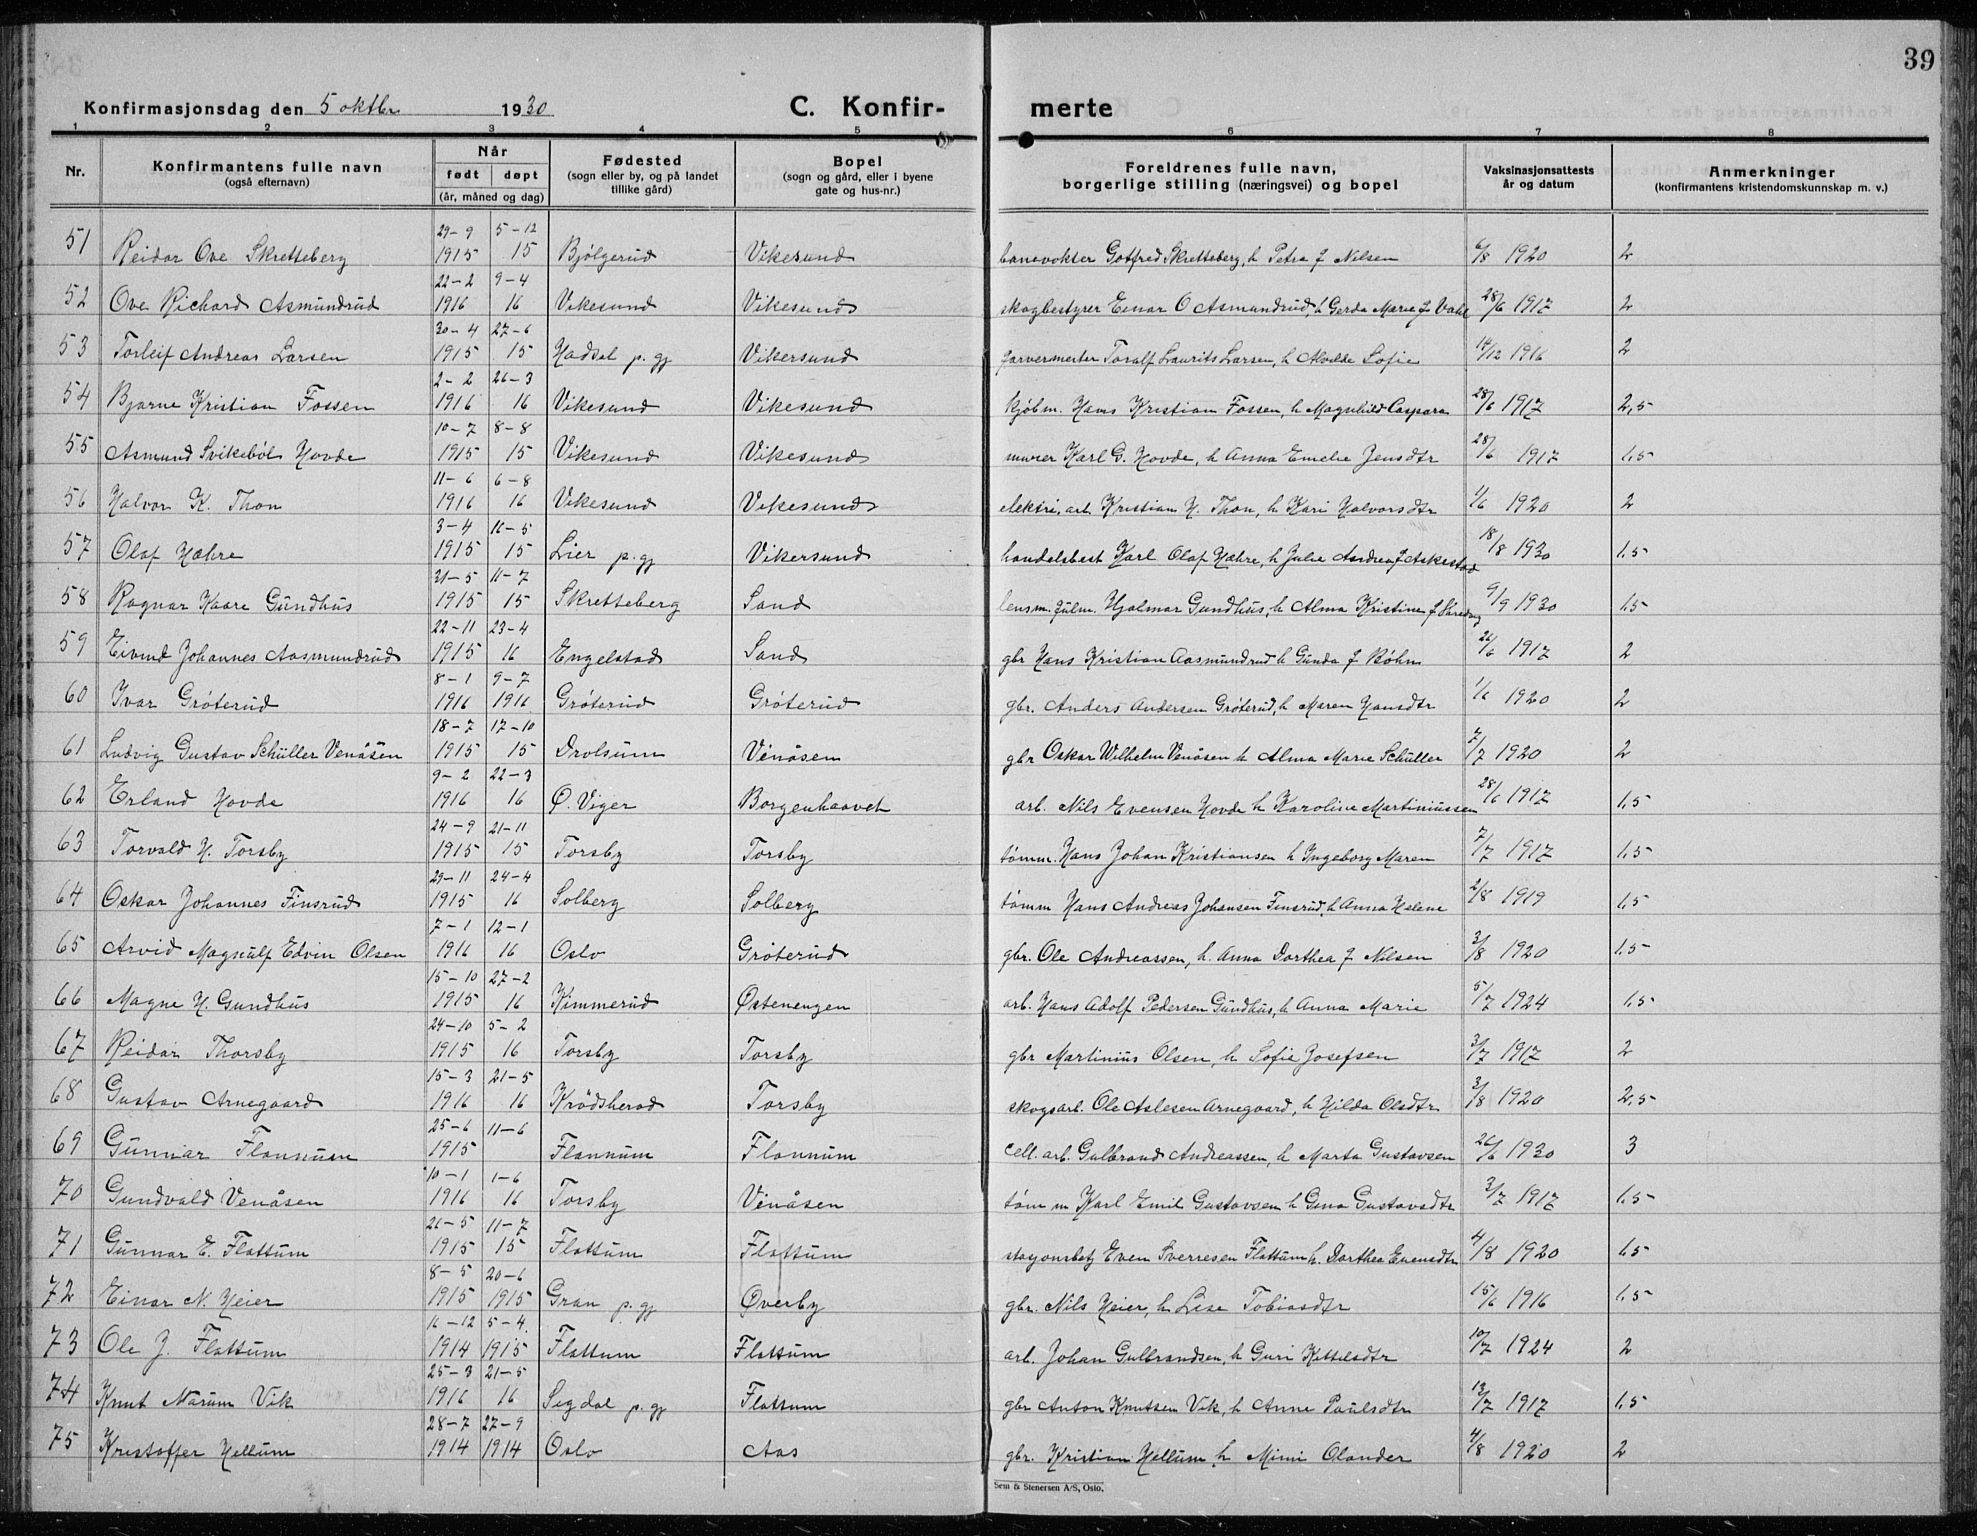 39
Konfirmasjonsdag den 5 oktbr 1930 C. Konfir- merte
1 2 3 4 5 6 7 8
Nr. Konfirmantens fulle navn (også efternavn) Når født døpt (år, måned og dag) Fødested (sogn eller by, og på landet tillike gård) Bopel (sogn og gård, eller i byene gate og hus-nr.) Foreldrenes fulle navn, borgerlige stilling (næringsvei) og bopel Vaksinasjonsattests år og datum Anmerkninger (konfirmantens kristendomskunnskap m. v.)
51 Reidar Ove Skretteberg 29-9 1915 5-12 15 Bjølgerud Vikesund banevokter Gotfred Skretteberg, h Petra f Nilsen 6/8 1920 2
52 Ove Richard Asmundrud 22-2 1916 9-4 16 Vikesund Vikesund skogbestyrer Einar O Asmundrud, h Gerda Marie f Vahl 28/6 1917 2
53 Torleif Andreas Larsen 30-4 1915 27-6 15 Hadsel p. gj Vikersund garvermester Toralf Laurits Larsen, h Alvilde Sofie 14/12 1916 2
54 Bjarne Kristian Fossen 2-2 1916 26-3 16 Vikesund Vikesund kjøbm. Hans Kristian Fossen, h Magnhild Caspara 28/6 1917 2,5
55 Asmund Svikebøl Hovde 10-7 1915 8-8 15 Vikesund Vikesund murer Karl G. Hovde, h Anna Emelie Jensdtr 28/6 1917 1,5
56 Halvor K. Thon 11-6 1916 6-8 16 Vikesund Vikesund elektri. arb. Kristian H. Thon, h Kari Halvorsdtr 1/6 1920 2
57 Olaf Hæhre 3-4 1915 16-5 15 Lier p. gj Vikersund handelsbest Karl Olaf Hæhre, h Julie Andrea f Askestad 18/8 1930 1,5
58 Ragnar Kaare Gundhus 31-5 1915 11-7 15 Skretteberg Sand lensm. fulm. Hjalmar Gundhus, h Alma Kristine f 9/9 1930 1,5
59 Eivind Johannes Aasmundrud 22-11 1915 23-4 16 Engelstad Sand gbr Hans Kristian Aasmundrud h Gunda f Bøhn 26/6 1917 2
60 Ivar Grøterud 8-1 1916 9-7 1916 Grøterud Grøterud gbr. Anders Andersen Grøterud, h Maren Hansdtr 1/6 1920 2
61 Ludvig Gustav Schüller Venåsen 18-7 1915 17-10 15 Drolsum Venåsen gbr Oskar Wilhelm Venåsen h Alma Marie Schuller 7/7 1920 2
62 Erland Hovde 9-2 1916 22-3 16 Ø. Viger Borgenhaavet arb. Nils Evensen Hovde h Karoline Martiniussen 28/6 1917 1,5
63 Torvald H. Torsby 24-9 1915 21-11 15 Torsby Torsby tømm. Hans Johan Kristiansen h Ingeborg Maren 7/7 1917 1,5
64 Oskar Johannes Finsrud 29-11 1915 24-4 16 Solberg Solberg tømm Hans Andreas Johansen Finsrud, h Anna Helene 2/8 1919 1,5
65 Arvid Magnulf Edvin Olsen 7-1 1916 12-1 16 Oslo Grøterud gbr. Ole Andreassen, h. Anna Dorthea f Nilsen 3/8 1920 1,5
66 Magne H. Gundhus 15-10 1915 27-2 16 Kimmerud Østenengen arb. Hans Adolf Pedersen Gundhus, h Anna Marie 5/7 1924 1,5
67 Reidar Thorsby 24-10 1915 5-2 16 Torsby Torsby gbr Martinius Olsen, h Sofie Josefsen 3/7 1917 2
68 Gustav Arnegaard 15-3 1916 21-5 16 Krødsherad Torsby skogsarb. Ole Aslesen Arnegaard, h Hilda Olsdtr 3/8 1920 2,5
69 Gunnar Flannum 25-6 1915 11-6 Flannum Flannum cell. arb. Gulbrand Andreassen, h Marta Gustavsen 26/6 1930 3
70 Gundvald Venåsen 10-1 1916 1-6 16 Torsby Venåsen tøm m Karl Emil Gustavsen h Gina Gustavsdtr 3/7 1917 1,5
71 Gunnar E. Flattum 26-5 1915 11-7 15 Flattum Flattum stasjonsbetj Even Sverresen Flattum h. Dorthea Evensdtr 4/8 1920 1,5
72 Einar N. Heier 8-5 1915 20-6 1915 Gran p. gj Øverby gbr. Nils Heier, h Lise Tobiasdtr 15/6 1916 1,5
73 Ole J. Flattum 16-12 1914 5-4. 1915 Flattum Flattum arb. Johan Gulbrandsen, h Guri Kittilsdtr 10/7 1924 2
74 Knut Narum Vik 25-3 1916 21-5 16 Sigdal p. gj Flattum gbr Anton Knutsen Vik, h Anne Paulsdtr 13/7 1917 1,5
75 Kristoffer Hellum 28-7 1914 27-9 1914 Oslo Aas gbr. Kristian Hellum h Mimi Olander 4/8 1920 2
Sem & Stenersen A/S, Oslo.